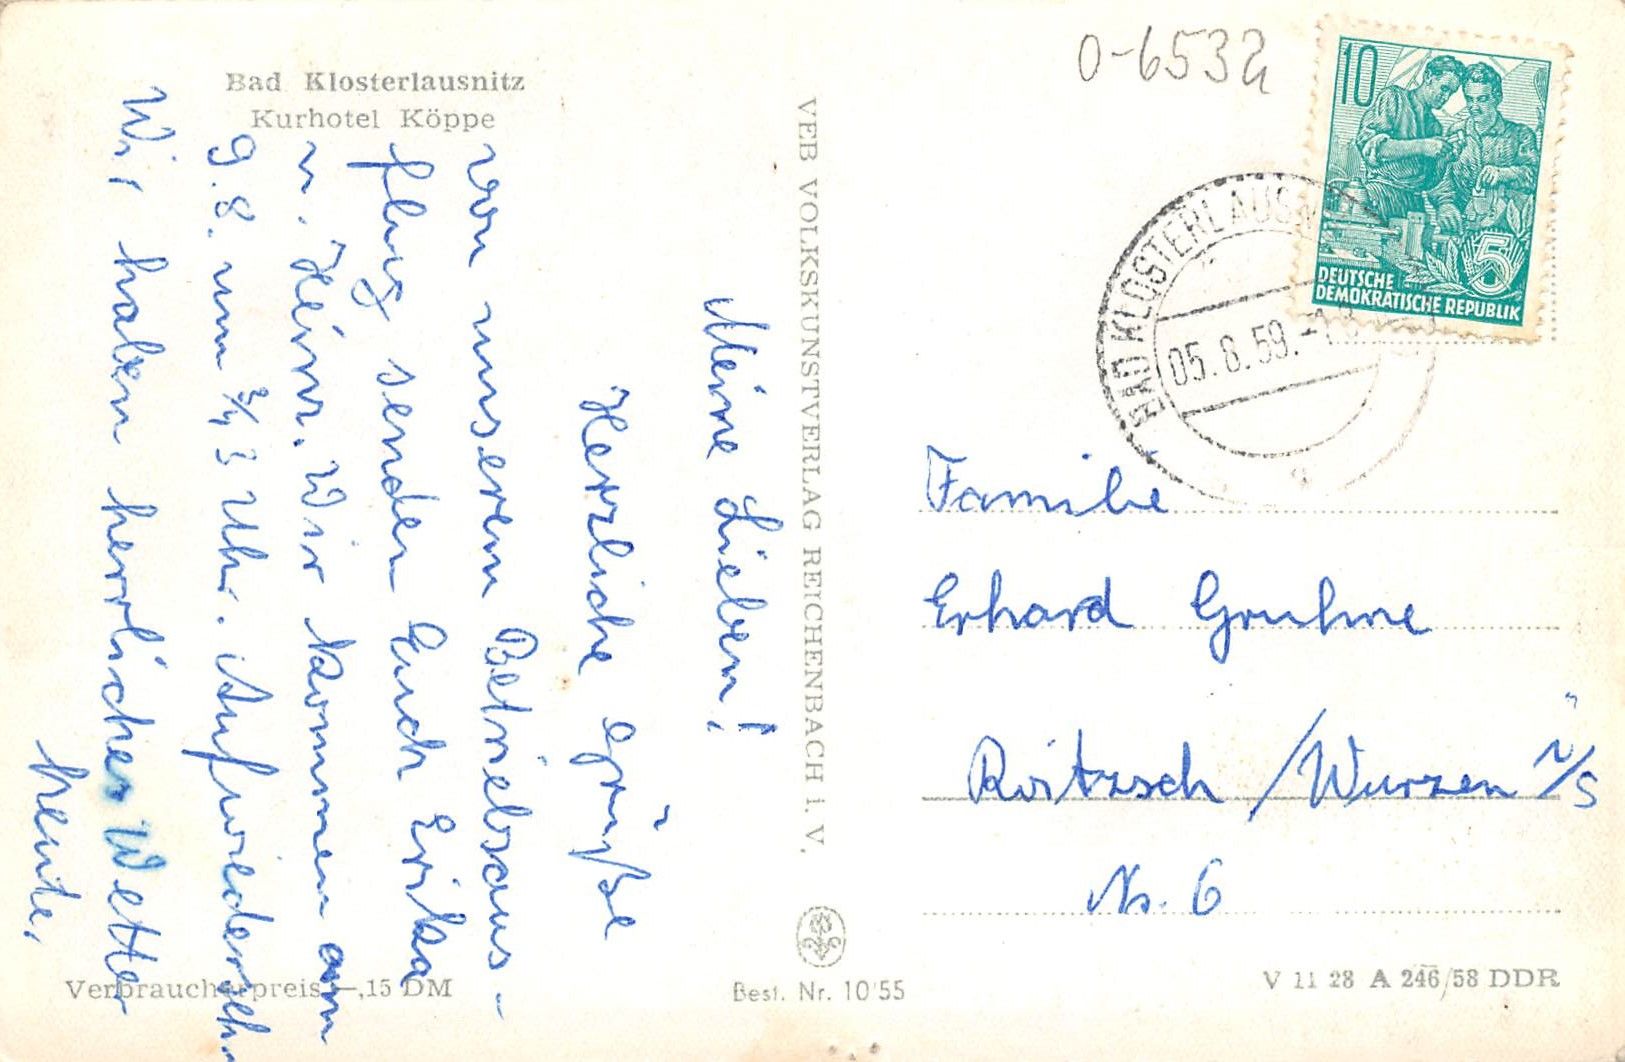 Bad Klosterlausnitz
Kurhotel Köppe
Meine Lieben!
Herzliche Grüße
von unserem Betriebsaus-
flug senden Euch Erika
u. Heinz. Wir kommen am
9.8. um 3/4 3 Uhr. Aufwiedersehn
Wir haben herrliches Wetter
heute.
VEB VOLKSKUNSTVERLAG REICHENBACH I. V.
0-6532
10
5
DEUTSCHE
DEMOKRATISCHE REPUBLIK
BAD KLOSTERLAUSNITZ
05.8.59.-18
Familie
Erhard Gruhne
Roitzsch / Wurzen i/S
Nr. 6
Verbraucherpreis -,15 DM
Best. Nr. 10 55
V 11 28 A 246/58 DDR